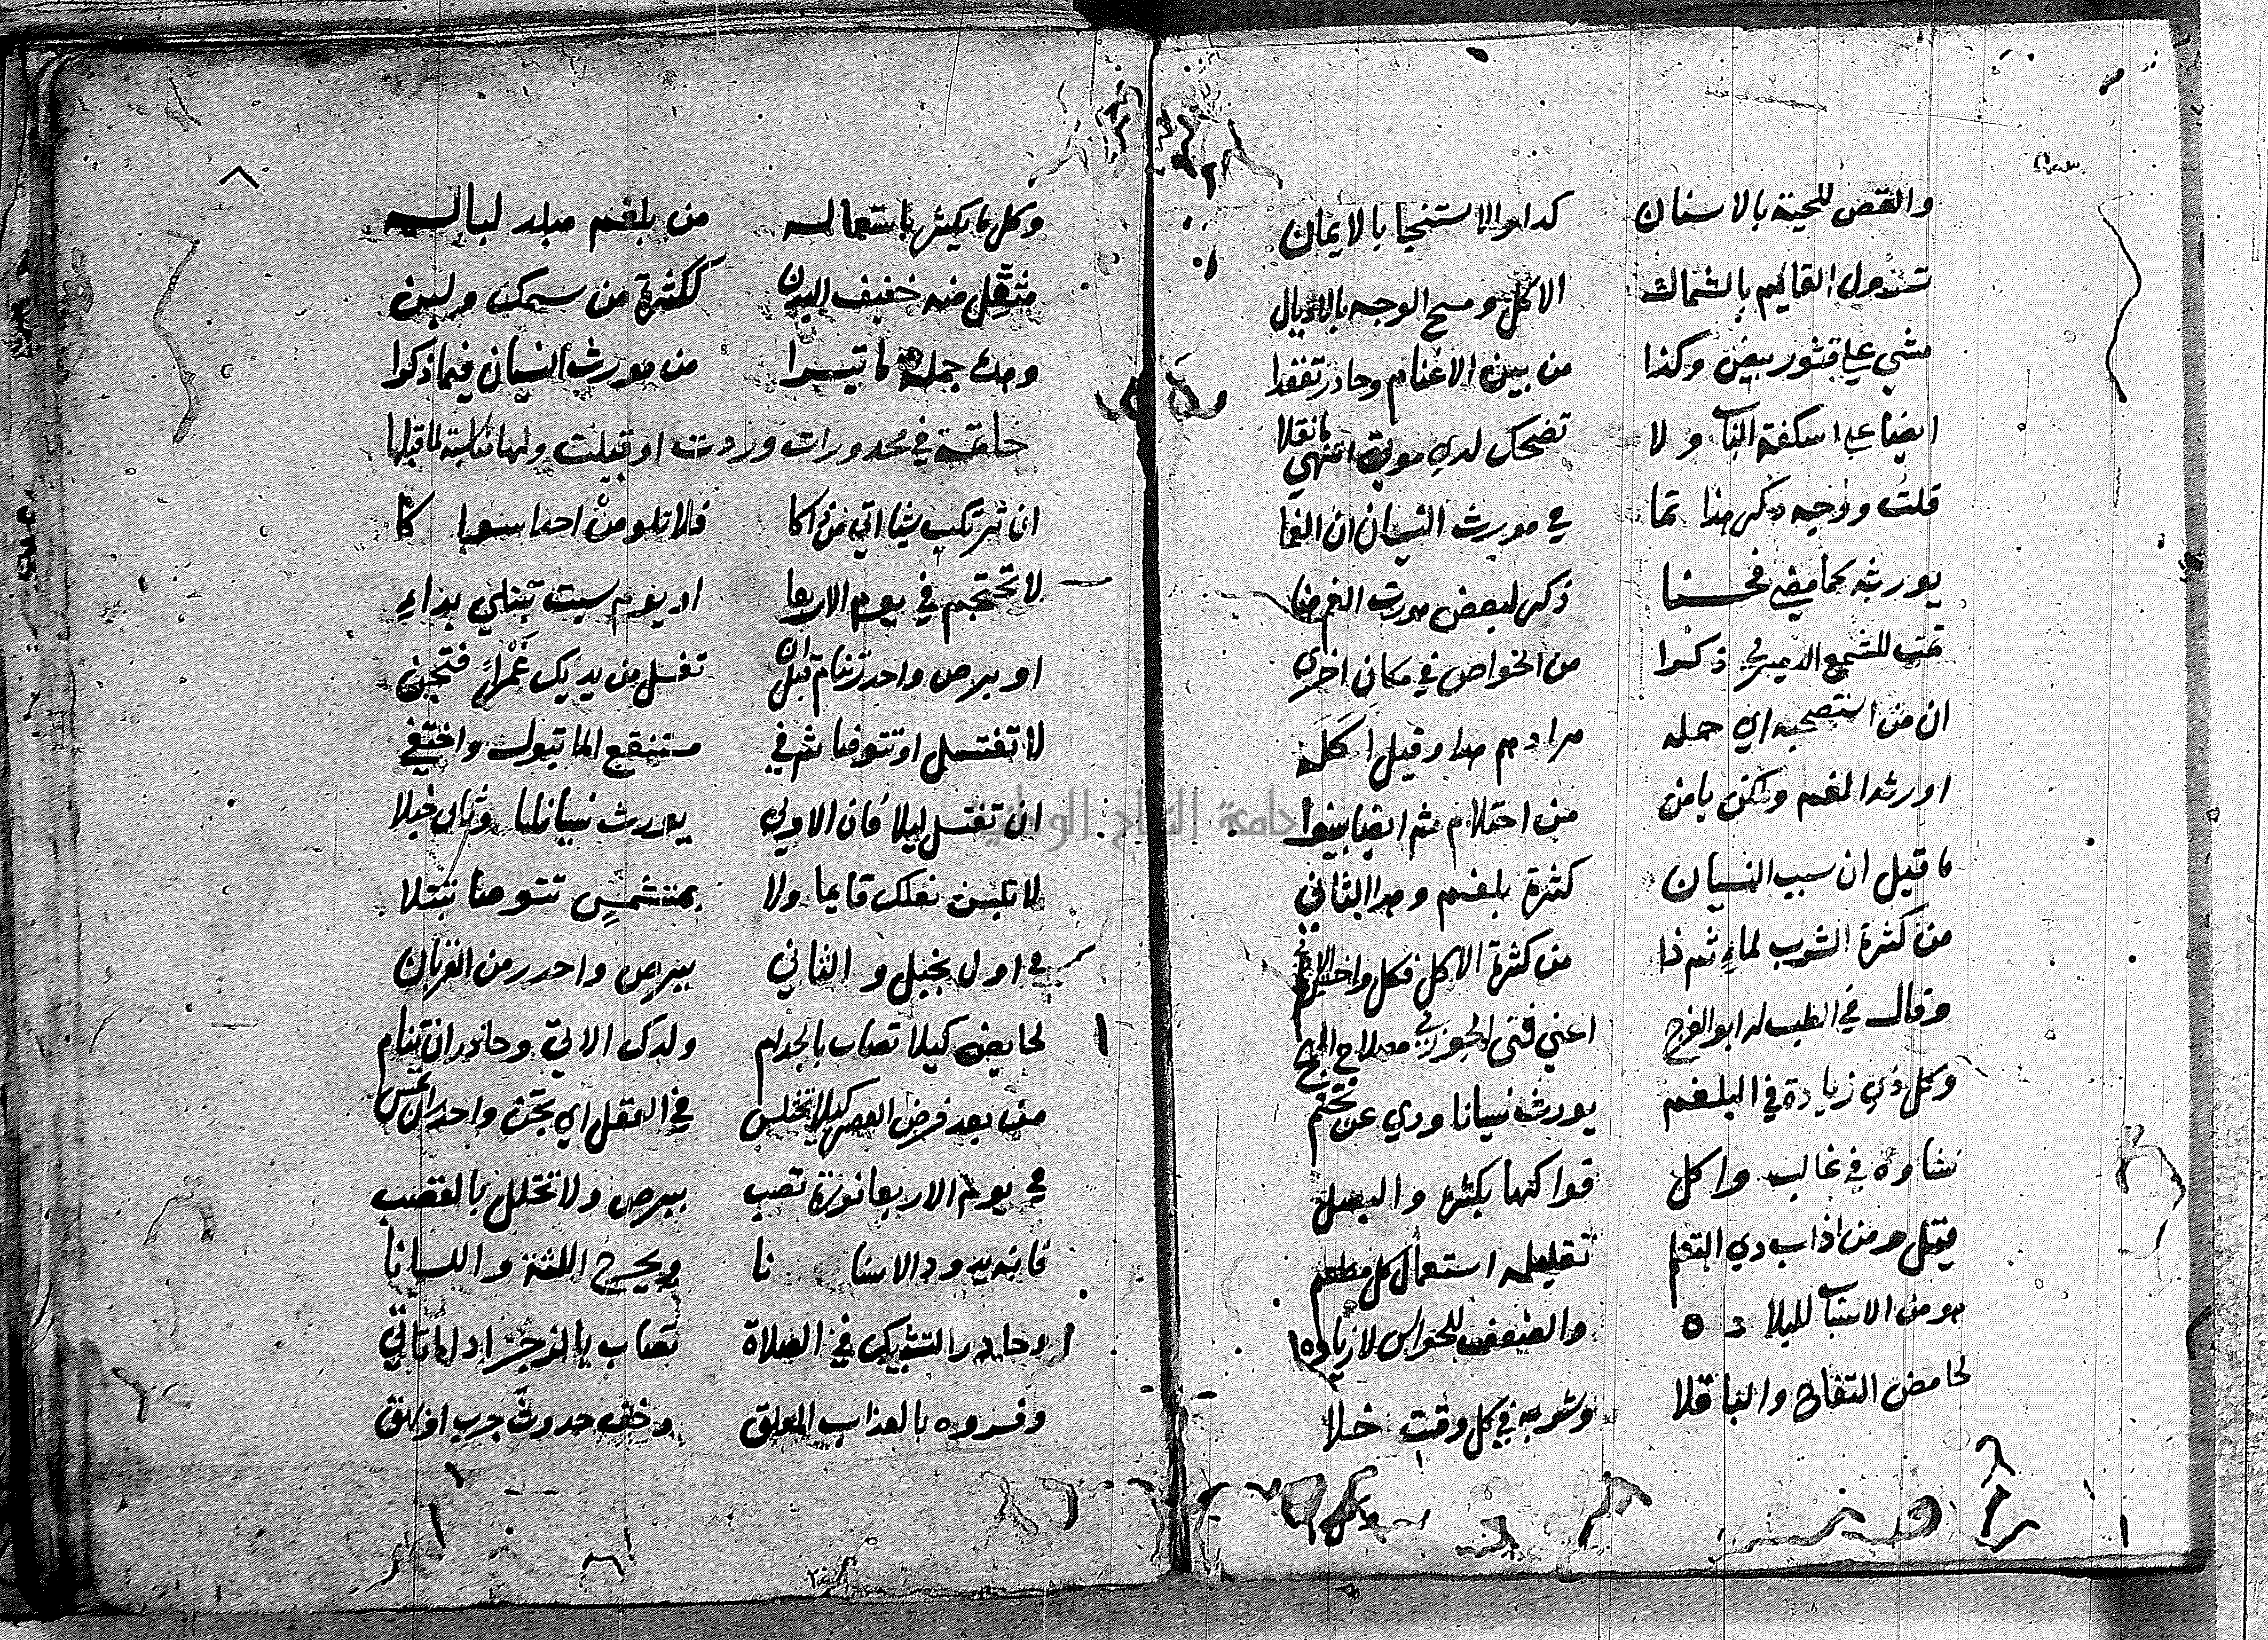 والقص للحية بالاسنان كذا والاستنجا بالايمان
تندول القايم بالشمال الاكل ومسح الوجه بالاديال
مشي علي قشور بيض وكذا من بين الاغنام وحادر تنفدا
ايضا علي اسكفة الباب ولا تضحك لدي موتي انتهي مانقلا
قلت ووجه ذكر هذا تما في مورث النسيان ان الغما
يورثه كما مضي فحسنا ذكر لبعض مورث الغم هنا
الدميري ذكرا من الخواص في مكان اخرى
ان من استصحبه اي حمله مرادهم هذا وقيل اكله
اورثه الغم وكن يامن من احتلام ثم ايضا بينوا
ما قيل ان سبب النسيان كثرة بلغم وهذا الثاني
من كثرة الشرب لماء ثم ذا من كثرة الاكل فكل
وقال في الطب له ابو الفرج اعني فتي الجوزي
وكل ذي زيادة في البلغم يورث نسيانا ودي عن تخم
نشاوه في غالب واكل فواكها بكثرة والبصل
تقليله استعمال كل مطعم
هو من الاسباب لليلاده والضعف للحواس لا زياده
لحامض التفاح والباقلا وشربه في كل وقت خلا
وكل ما يكثر باستعماله من بلغم مبلد لباله
مثقل منه خفيف البدن ككثرة من سمك ولبن
وهذه جملة ما تيسرا من مورث النسيان فيما ذكرا
خاتمة في محدورات وردت او قيلت ولها مناسبة لما قبلها
ان ترتكب شيا اتي من ذاكا فلا تلومن احدا سواكا
لا تحتجم في يوم الاربعا او يوم سبت تبتلي بداء
او برص واحدر تنام قبل ان تغسل من يديك غمرا فتجن
لا تغتسل او تتوضا ثم في مستنقع الما تبول واختفي
ان تغتسل ليلا فان الاولي يورث نسيانا وثان خبلا
لا تلبسن نعلك قايما ولا بمتشمس تتوضا تبتلا
في اول بخبل والثاني ببرص واحدر من القربان
لحايض كيلا تصاب بالجدام ولدك الاتي وحادر ان تنام
من بعد فرض العصر كيلا تختلس في العقل اي تجن واحدر ان
في يوم الاربعا نورة تصب ببرص ولا تخلل بالقصب
فانه يدود الاسنانا ويجرح اللثة واللسانا
وحادر التشبيك في الصلاة تصاب بالزجر
وفسروه بالعذاب المعلق وخف حدوث جرب او بهق